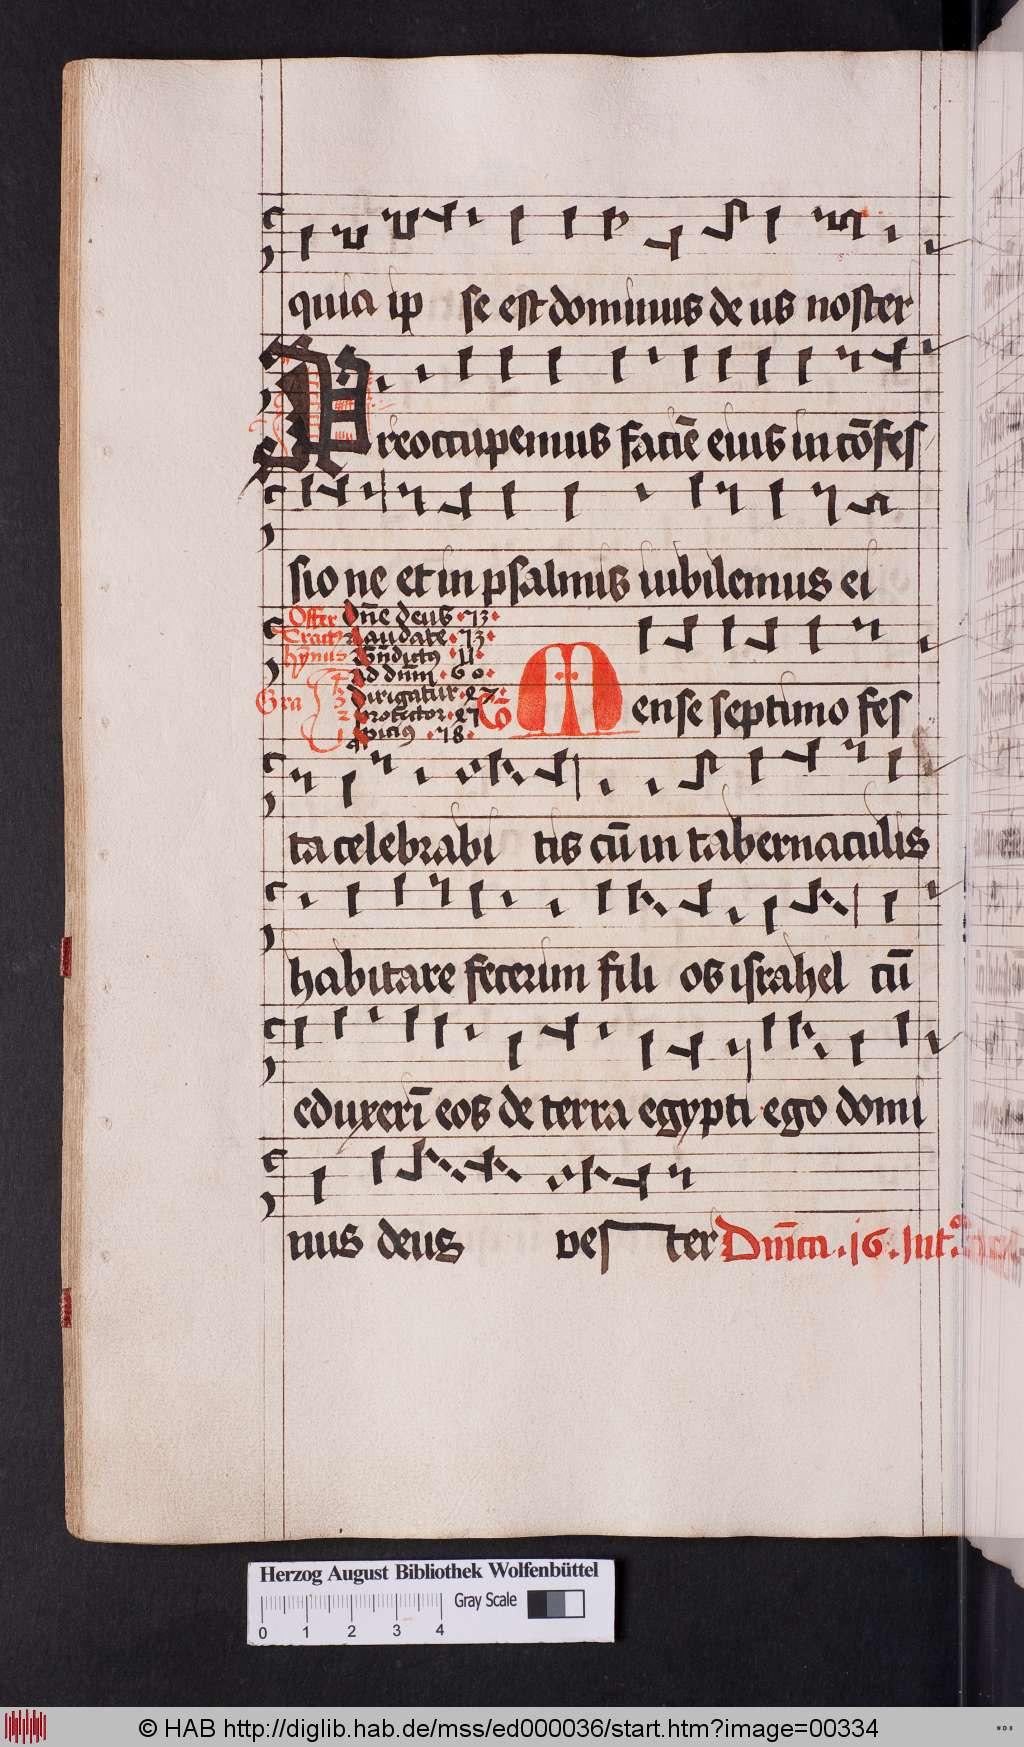 quia ip se est dominus de us noster
Preoccupemus faciē eius in cōfes
sio ne et in psalmis iubilemus ei
Offer dn̄e deus · 73 ·
Tract⁹ Laudate · 73 ·
hymnus Bn̄dictus · 11 ·
4 Ad dnm̄ · 60 ·
Gra 3 Dirigatur · 27 ·
2 Protector · 27
1 · 78 ·
Cō Mense septimo fes
ta celebrabi tis cū in tabernaculis
habitare fecerim fili os israhel cū
eduxerī eos de terra egypti ego domi
nus deus vester Dn̄ica · 16 · Int°
Herzog August Bibliothek Wolfenbüttel
Gray Scale
0 1 2 3 4
© HAB http://diglib.hab.de/mss/ed000036/start.htm?image=00334
WDB